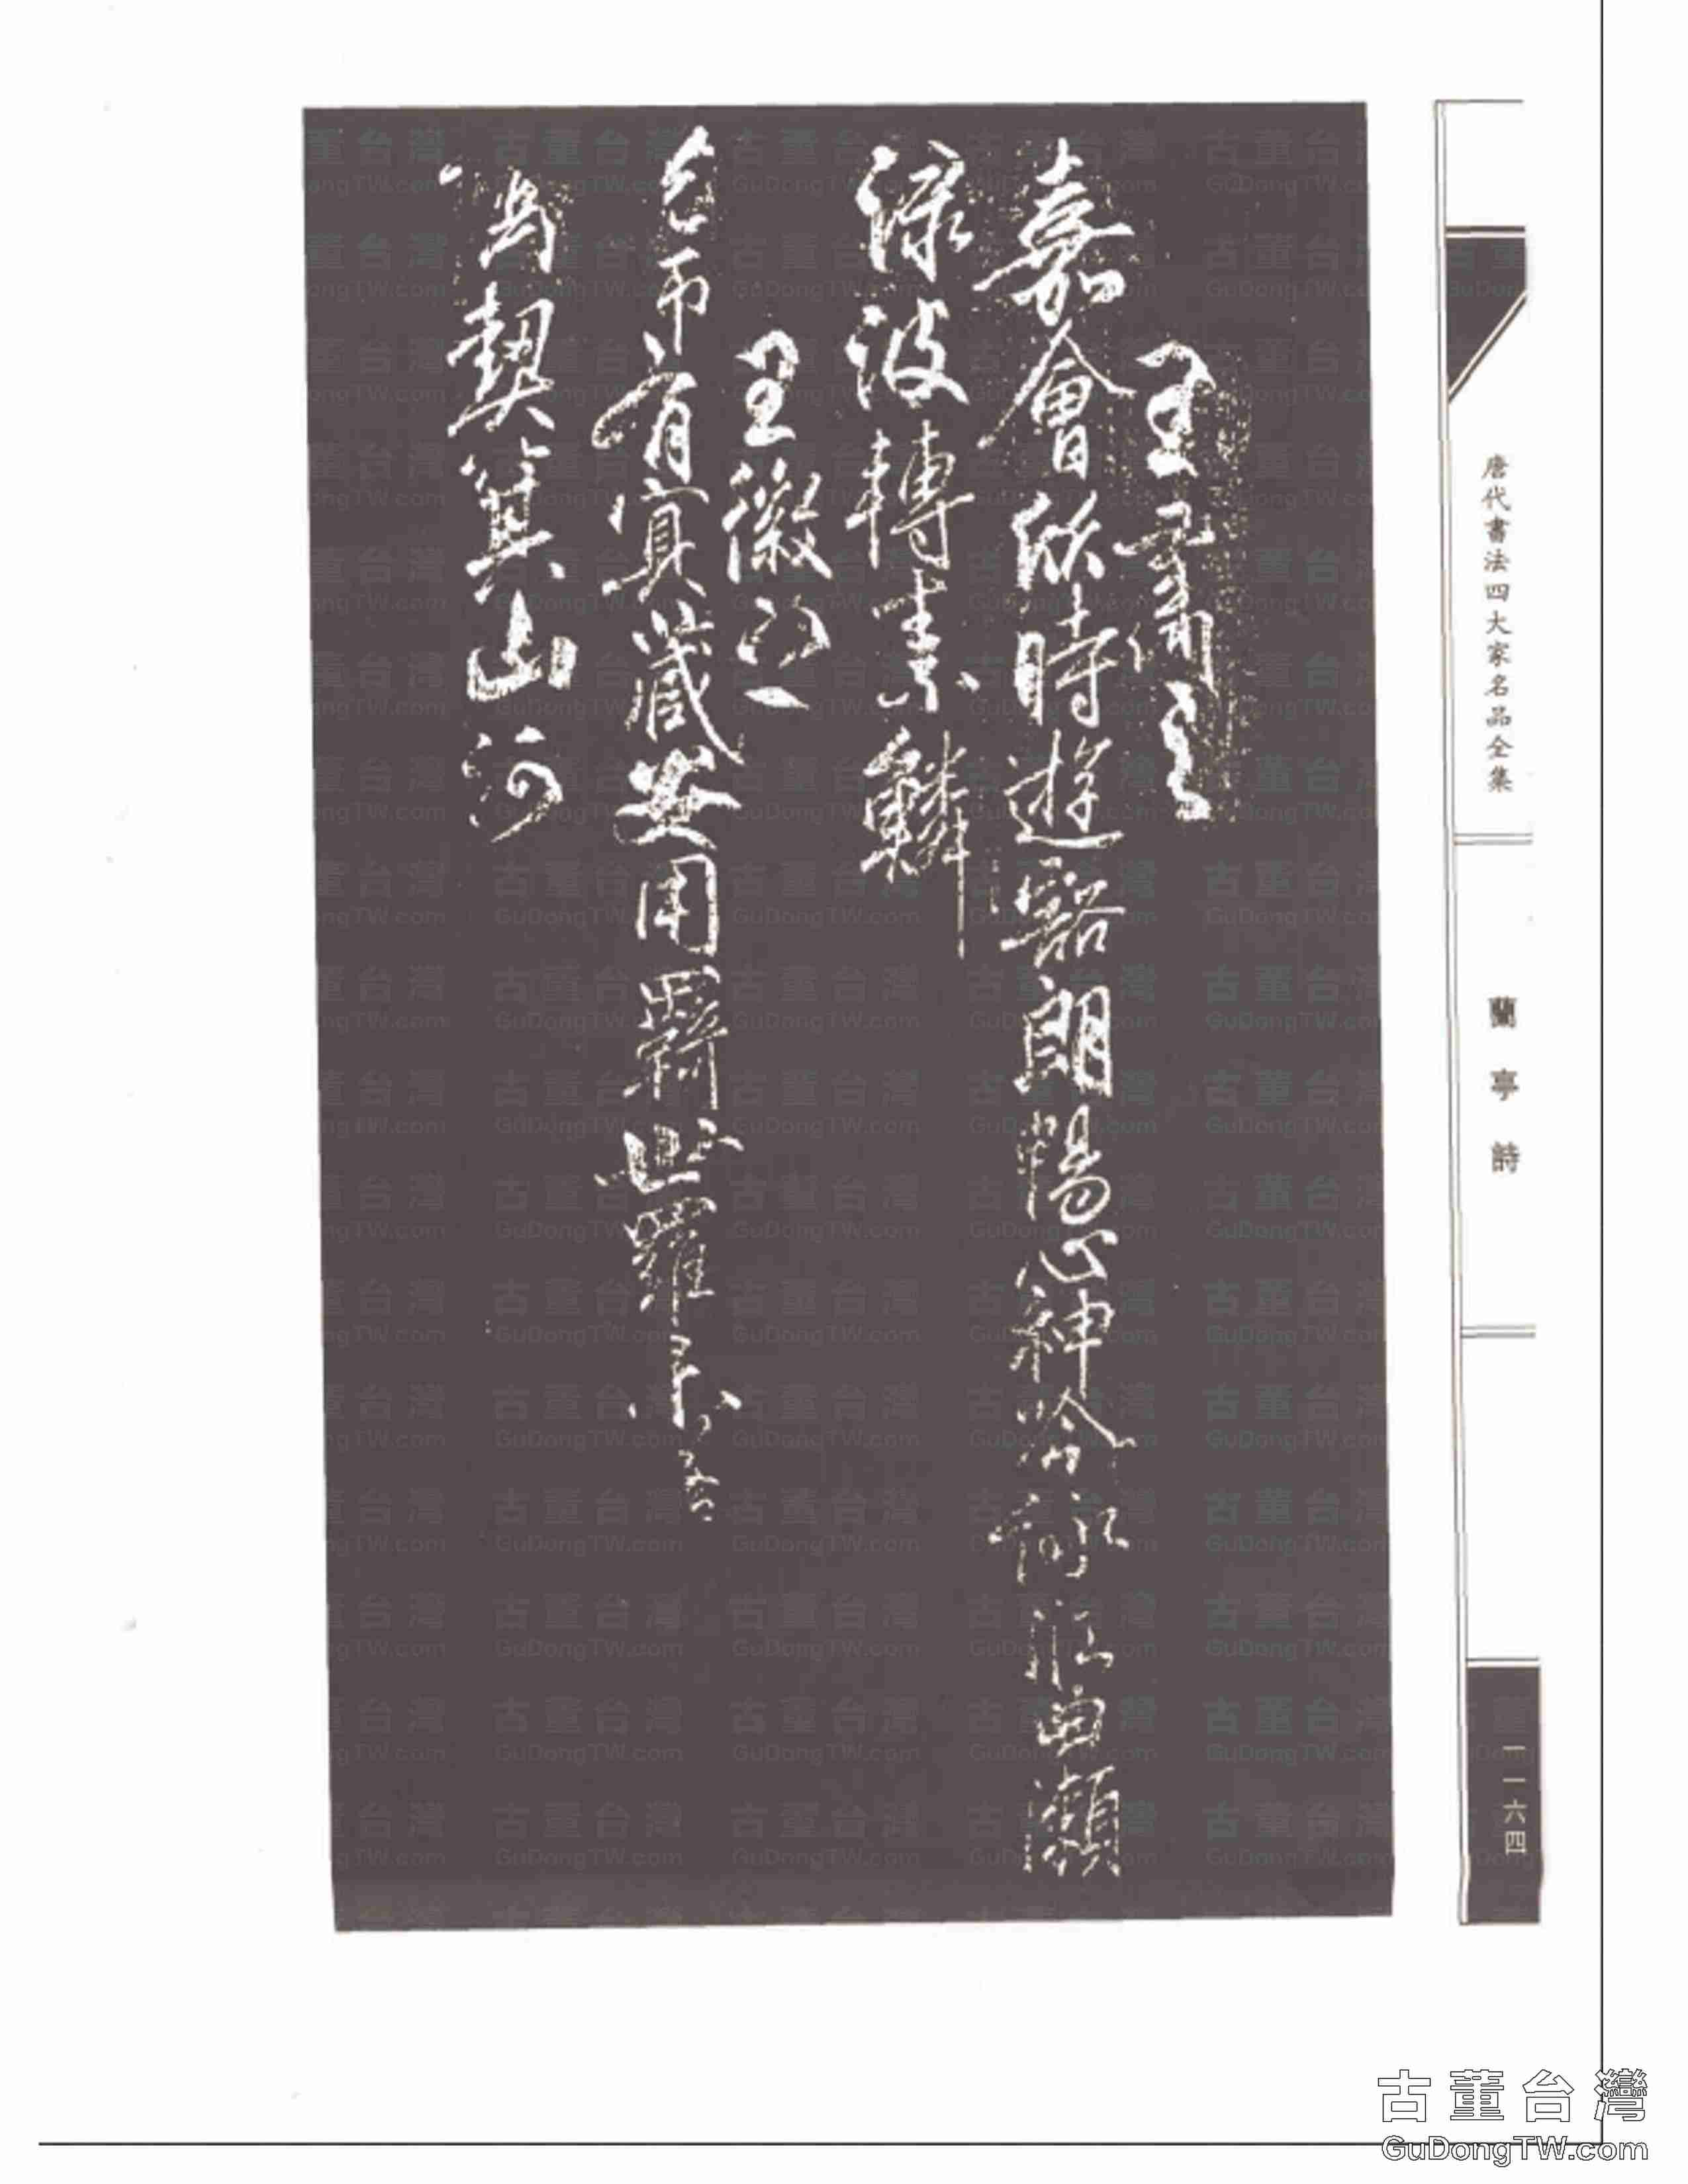 唐代書法四大家名品全集
蘭亭詩
一一六四
王肅之
嘉會欣時遊豁朗暢心神吟詠曲瀨
淥波轉素鱗
王徽之
師有冥藏安用羈世羅未若
契箕山河
古董台灣
GuDongTW.com